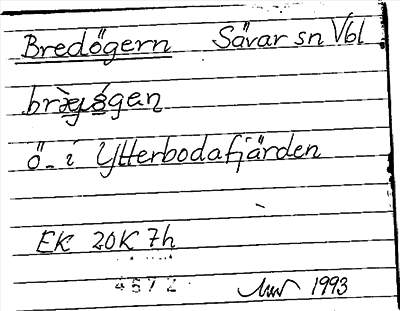 Bredögern Sävar sn Vbl
ö i Ytterbodafjärden
EK 20K 7h
4672
1993